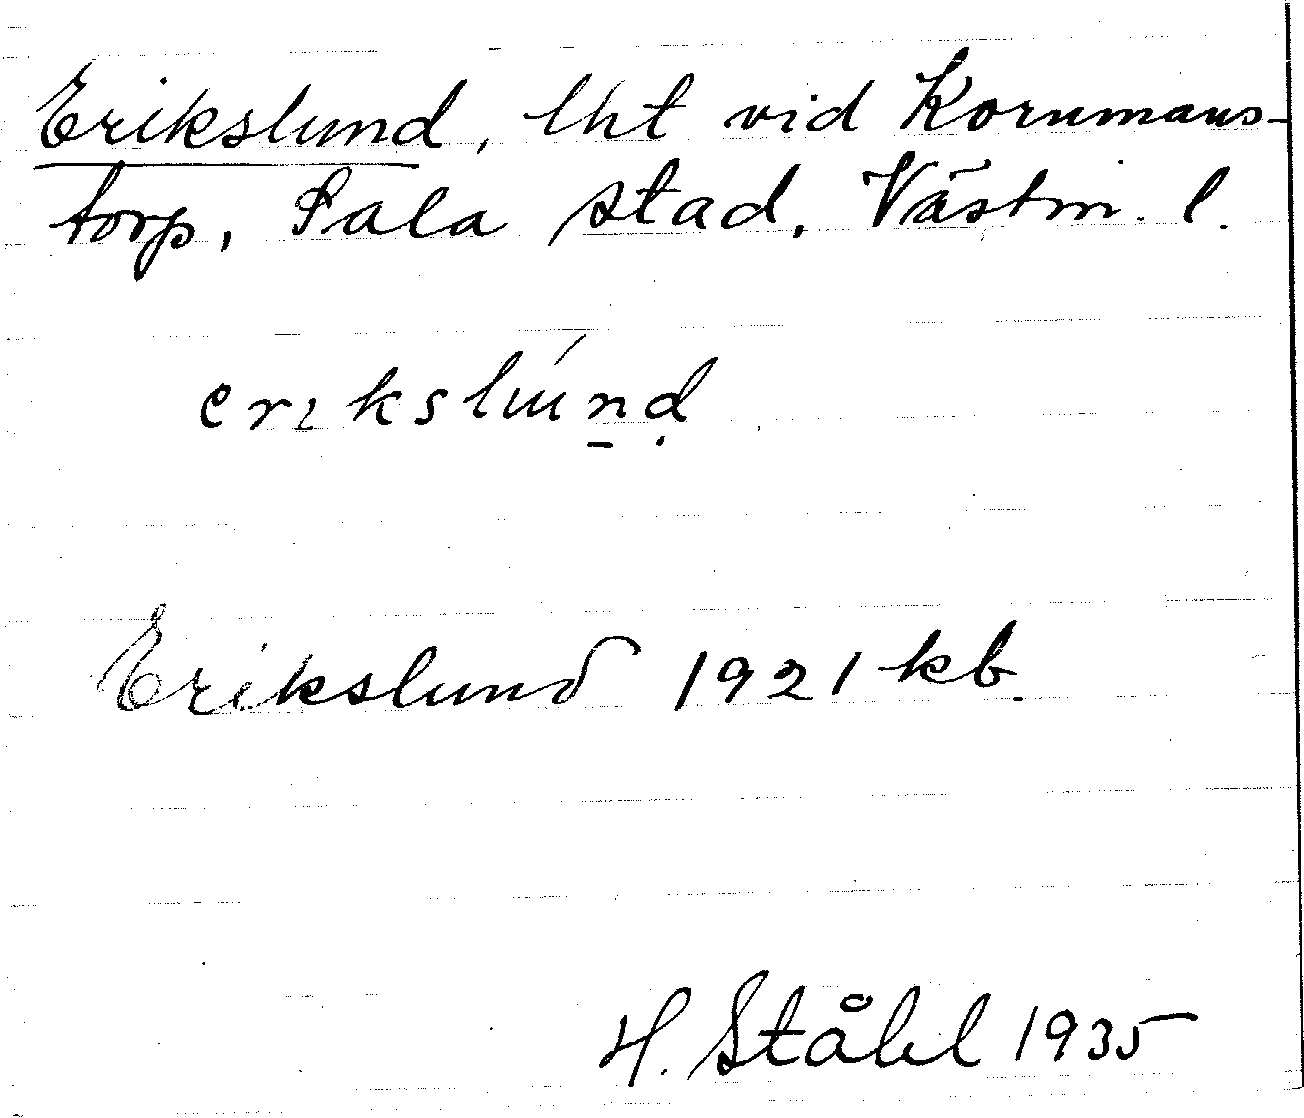 Erikslund, lht vid Kornmans-
torp, Sala stad, Västm. l.
erikslund
Erikslund 1921 kb.
H. Ståhl 1935